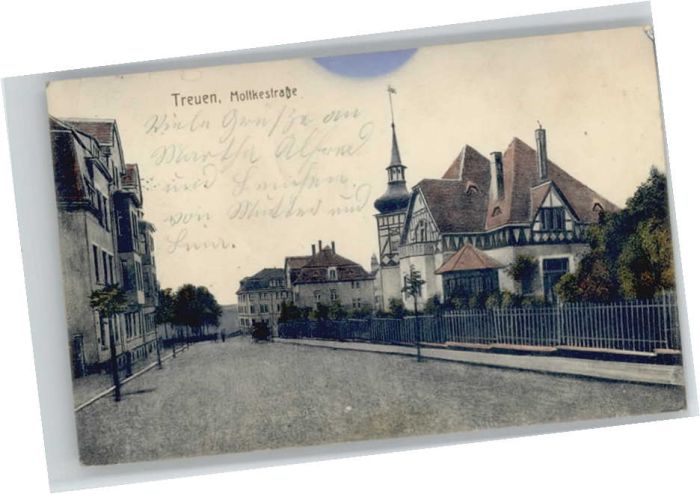 Treuen, Moltkestraße
Viele Grüße an
Martha Alfred
und
von Mutter und